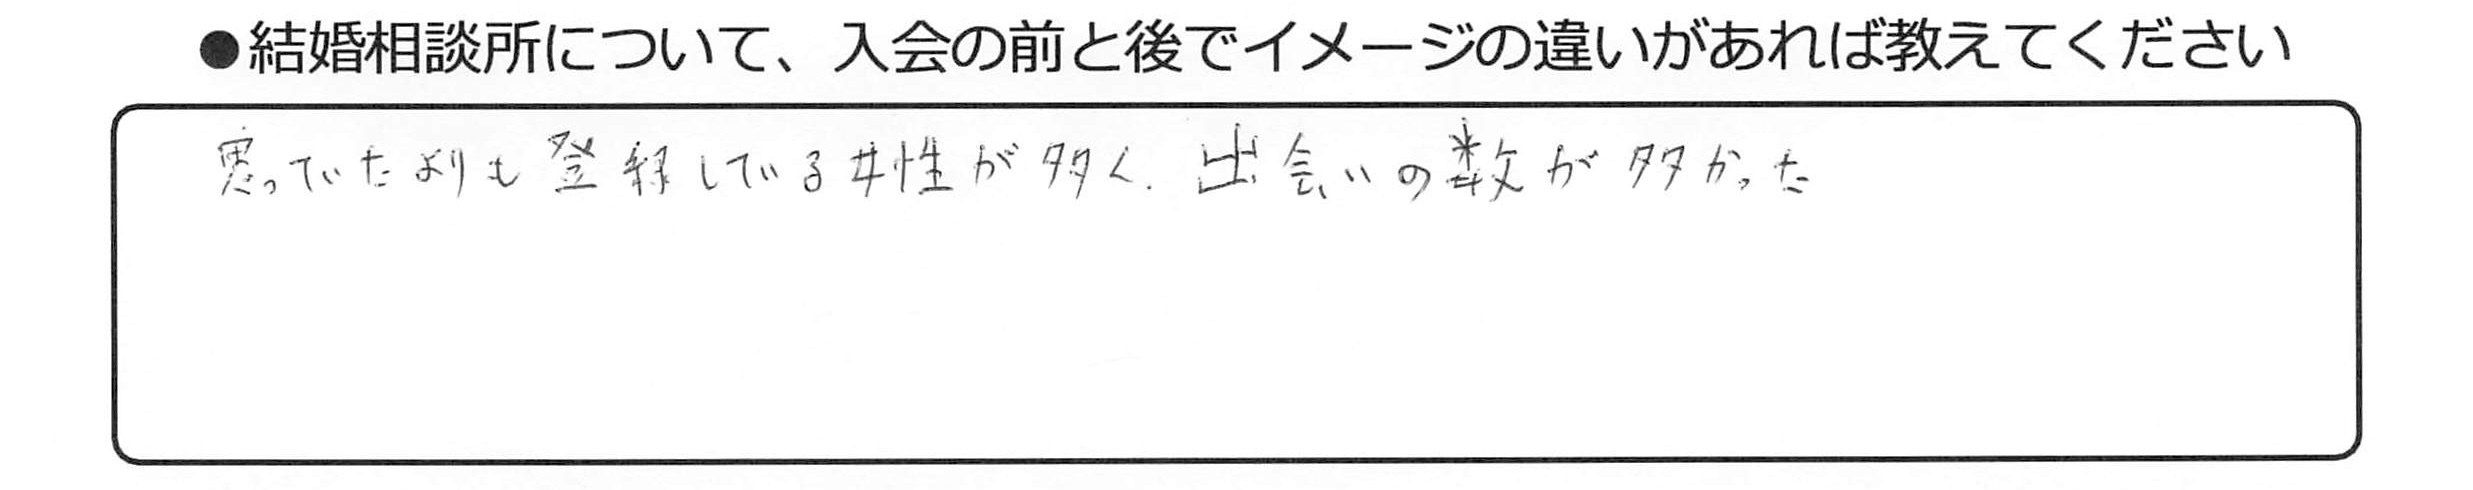 ●結婚相談所について、入会の前と後でイメージの違いがあれば教えてください
思っていたよりも登録している女性が多く、出会いの数が多かった